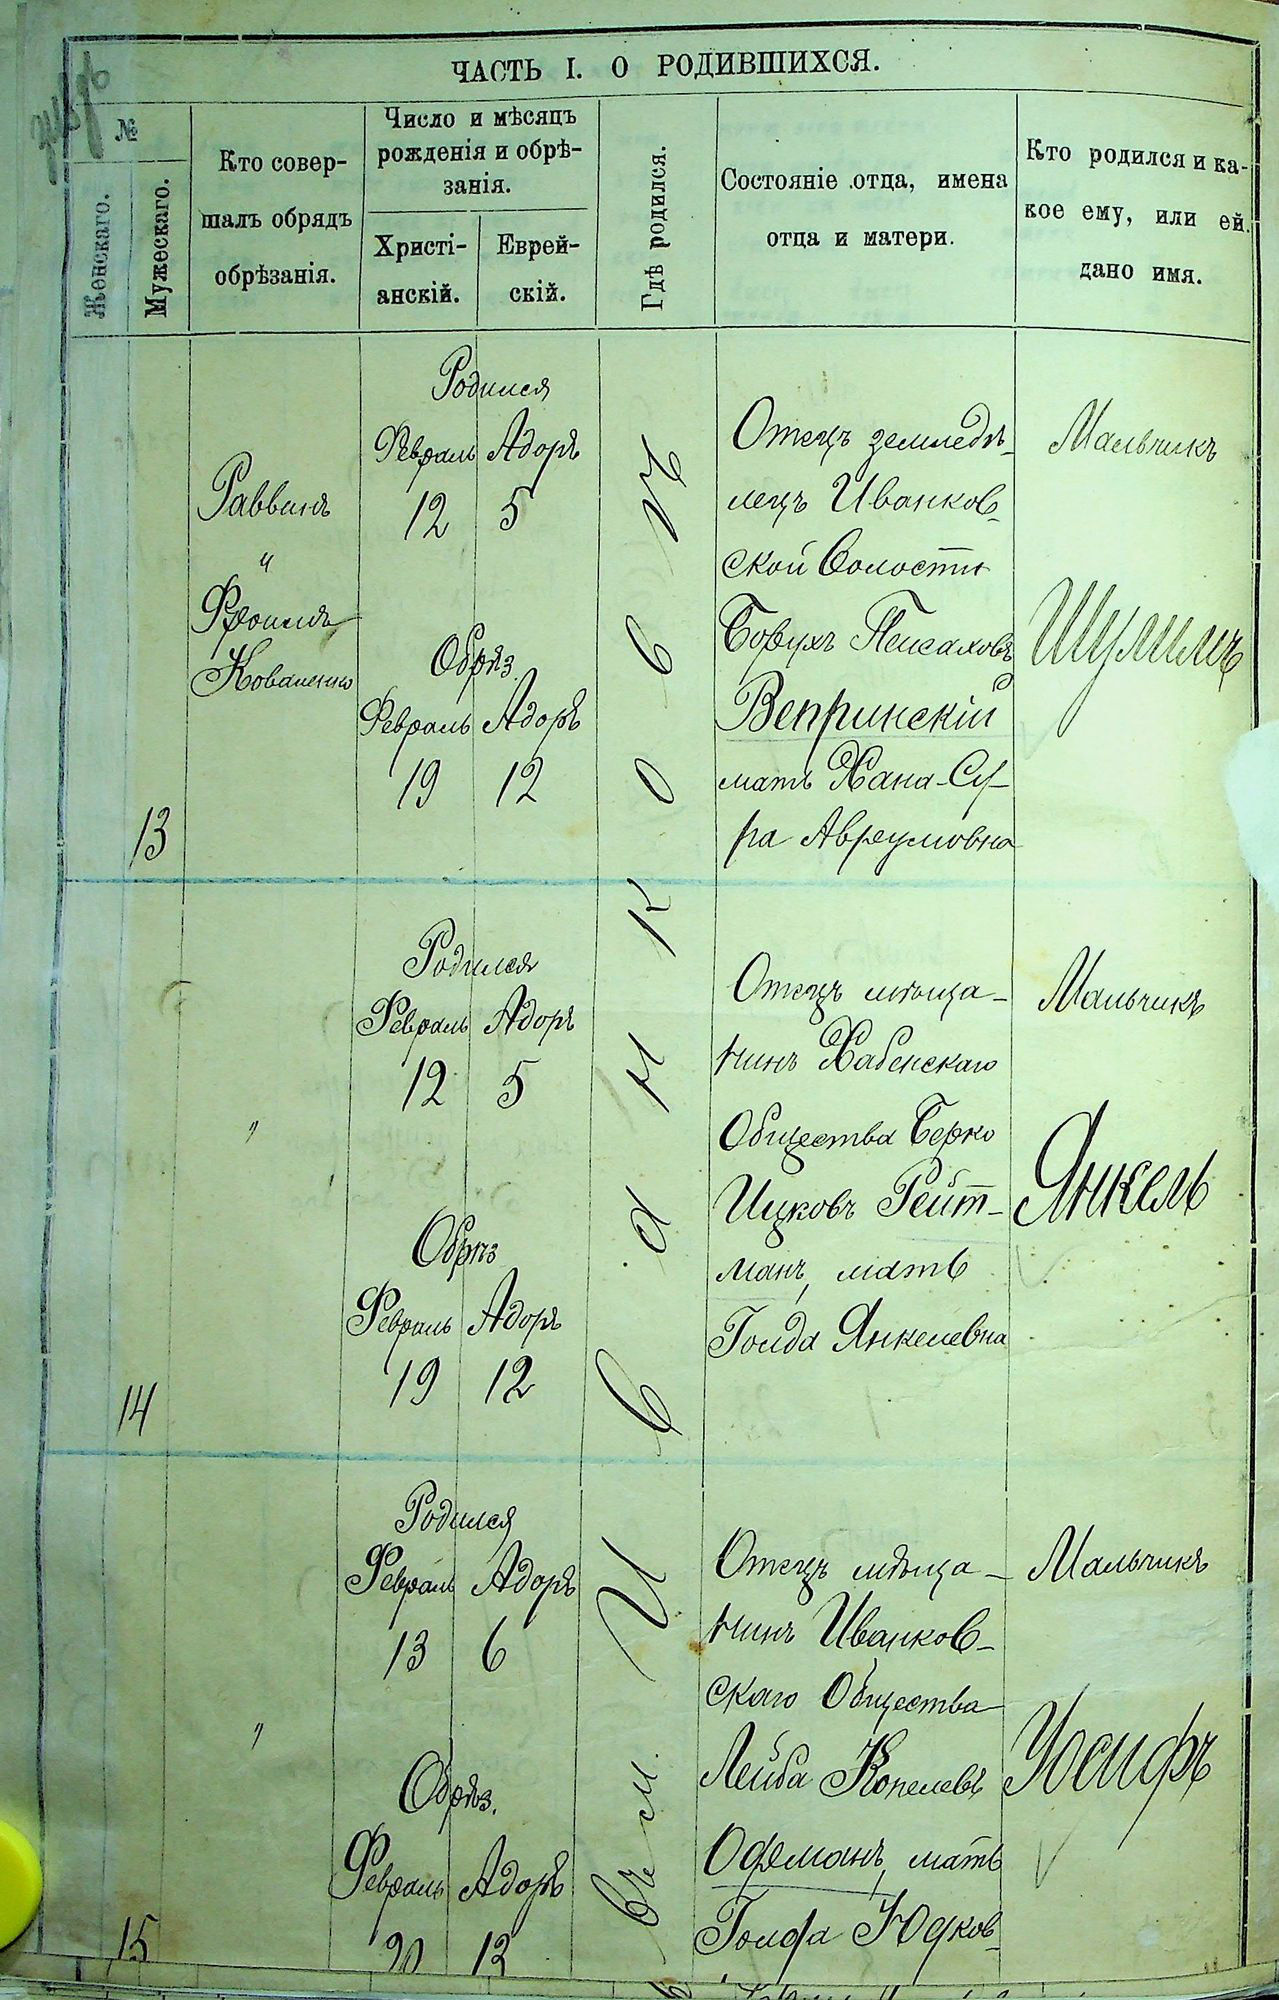 ЧАСТЬ I. О РОДИВШИХСЯ.
№
Женскаго.
Мужескаго.
Кто совер-
шалъ обрядъ
обрѣзанія.
Число и мѣсяцъ
рожденія и обрѣ-
занія.
Христі-
анскій.
Еврей-
скій.
Гдѣ родился.
Состояніе отца, имена
отца и матери.
Кто родился и ка-
кое ему, или ей
дано имя.
13
Раввинъ
"
Фроимъ
Коваленко
Родился
Февраль Адоръ
12 5
Обрѣз.
Февраль Адоръ
19 12
Въ м. Иванковъ
Отецъ земледѣ-
лецъ Иванков-
ской Волости
Борухъ Пейсаховъ
Вепринскій
мать Хана-Су-
ра Авреумовна
Мальчикъ
Шулимъ
14
"
Родился
Февраль Адоръ
12 5
Обрѣз
Февраль Адоръ
19 12
Отецъ мѣща-
нинъ Хабенскаго
Общества Берко
Ицковъ Рейт-
манъ, мать
Голда Янкелевна
Мальчикъ
Янкель
15
"
Родился
Февраль Адоръ
13 6
Обрѣз.
Февраль Адоръ
20 13
Отецъ мѣща-
нинъ Иванков-
скаго Общества
Лейба Копелевъ
мать
Голда Юдков-
Мальчикъ
Іосифъ